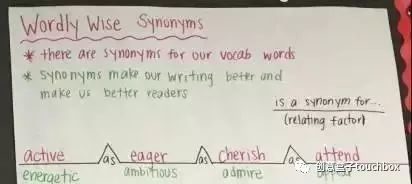 Wordly Wise Synonyms
* there are synonyms for our vocab words
* Synonyms make our writing beter and
make us better readers
is a synonym for...
(relating factor)
active as eager as cherish as attend
energetic ambitious admire
创意盒子touchbox